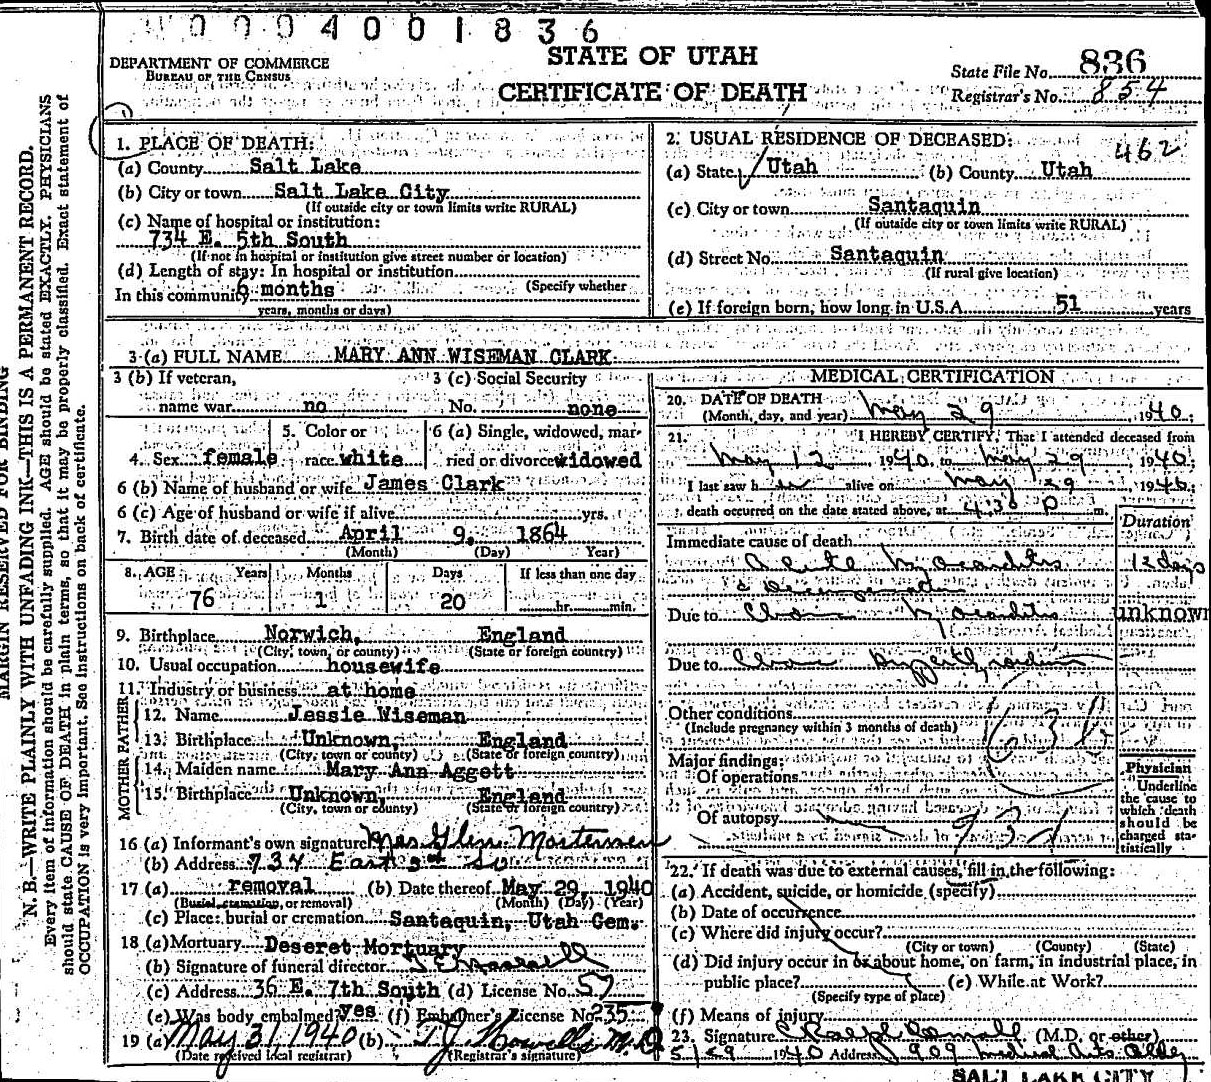 0004001836
DEPARTMENT OF COMMERCE
BUREAU OF THE CENSUS
STATE OF UTAH
CERTIFICATE OF DEATH
State File No. 836
Registrar's No. 854
MARGIN RESERVED FOR BINDING
N. B.—WRITE PLAINLY WITH UNFADING INK—THIS IS A PERMANENT RECORD.
Every item of information should be carefully supplied. AGE should be stated EXACTLY. PHYSICIANS
should state CAUSE OF DEATH in plain terms, so that it may be properly classified. Exact statement of
OCCUPATION is very important. See instructions on back of certificate.
1. PLACE OF DEATH:
(a) County Salt Lake
(b) City or town Salt Lake City
(If outside city or town limits write RURAL)
(c) Name of hospital or institution:
734 E. 5th South
(If not in hospital or institution give street number or location)
(d) Length of stay: In hospital or institution
(Specify whether
In this community 6 months
years, months or days)
2. USUAL RESIDENCE OF DECEASED:
462
(a) State Utah (b) County Utah
(c) City or town Santaquin
(If outside city or town limits write RURAL)
(d) Street No. Santaquin
(If rural give location)
(e) If foreign born, how long in U.S.A. 51 years
3 (a) FULL NAME MARY ANN WISEMAN CLARK
3 (b) If veteran, 3 (c) Social Security
name war no No. none
5. Color or 6 (a) Single, widowed, mar-
4. Sex female race white ried or divorced widowed
6 (b) Name of husband or wife James Clark
6 (c) Age of husband or wife if alive yrs.
7. Birth date of deceased April 9, 1864
(Month) (Day) Year)
8. AGE Years Months Days If less than one day
76 1 20 hr. min.
9. Birthplace Norwich, England
(City, town, or county) (State or foreign country)
10. Usual occupation housewife
11. Industry or business at home
FATHER
12. Name Jessie Wiseman
13. Birthplace Unknown, England
(City, town or county) (State or foreign country)
MOTHER
14. Maiden name Mary Ann Aggett
15. Birthplace Unknown, England
(City, town or county) (State or foreign country)
16 (a) Informant's own signature Mrs Glen Mortensen
(b) Address 734 East 5th So
17 (a) removal (b) Date thereof May 29, 1940
(Burial, cremation, or removal) (Month) (Day) (Year)
(c) Place: burial or cremation Santaquin, Utah Cem.
18 (a) Mortuary Deseret Mortuary
(b) Signature of funeral director
(c) Address 36 E. 7th South (d) License No. 57
(e) Was body embalmed? yes (f) Embalmer's License No. 235
19 (a) May 31, 1940 (b) T.J. Howells M.D.
(Date received local registrar) (Registrar's signature)
MEDICAL CERTIFICATION
20. DATE OF DEATH
(Month, day, and year) May 29, 1940
21. I HEREBY CERTIFY, That I attended deceased from
May 12, 1940, to May 29, 1940;
I last saw her alive on May 29, 1940;
death occurred on the date stated above, at 4:30 P m.
Duration
Immediate cause of death
Acute Myocarditis 12 days
Decompensation
Due to Chronic Myocarditis unknown
Due to Chronic
Other conditions
(Include pregnancy within 3 months of death)
Major findings:
Of operations
Of autopsy
Physician
Underline
the cause to
which death
should be
charged sta-
tistically
22. If death was due to external causes, fill in the following:
(a) Accident, suicide, or homicide (specify)
(b) Date of occurrence
(c) Where did injury occur?
(City or town) (County) (State)
(d) Did injury occur in or about home, on farm, in industrial place, in
public place? (e) While at Work?
(Specify type of place)
(f) Means of injury
23. Signature (M.D. or other)
5/29 1940 Address 909 Medical Arts Bldg
SALT LAKE CITY